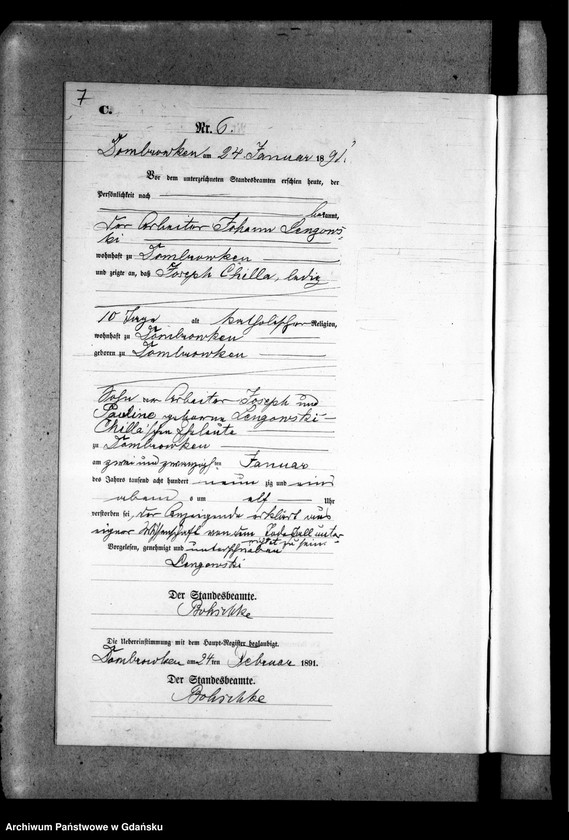 7
C.
Nr. 6.
Dombrowken am 24 Januar 1891.
Vor dem unterzeichneten Standesbeamten erschien heute, der
Persönlichkeit nach
bekannt,
der Arbeiter Johann Lengows-
ki
wohnhaft zu Dombrowken
und zeigte an, daß Joseph Chilla, ledig
10 Tage alt katholischer Religion,
wohnhaft zu Dombrowken
geboren zu Dombrowken
Sohn der Arbeiter Joseph und
Pauline geborene Lengowski-
Chilla'schen Eheleute
zu Dombrowken
am zwei und zwanzigsten Januar
des Jahres tausend acht hundert neun zig und eins
abends um elf Uhr
verstorben sei, der Anzeigende erklärt aus
eigner Wissenschaft von dem Todesfall unter-
richtet zu sein.
Vorgelesen, genehmigt und unterschrieben
Lengowski
Der Standesbeamte.
Bohschke
Die Uebereinstimmung mit dem Haupt-Register beglaubigt.
Dombrowken am 24 ten Februar 1891.
Der Standesbeamte.
Bohschke
Archiwum Państwowe w Gdańsku